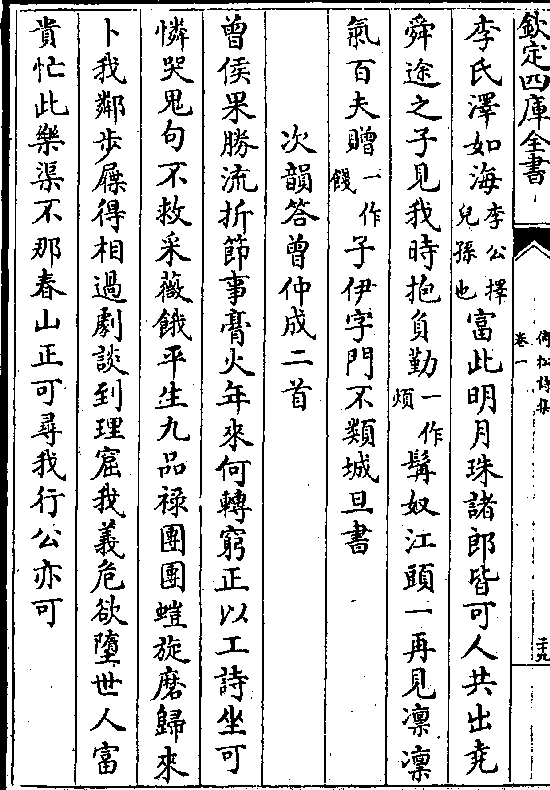 欽定四庫全書
倚松詩集
卷一
二十九
李氏澤如海李公擇兒孫也富此明月珠諸郎皆可人共出堯
舜途之子見我時抱負勤一作煩髯奴江頭一再見凜凜
氣百夫贈一作餞子伊字門不類城旦書
次韻答曾仲成二首
曾侯果勝流折節事膏火年來何轉窮正以工詩坐可
憐哭鬼句不救采薇餓平生九品祿團團螘旋磨歸來
卜我鄰步屧得相過劇談到理窟我義危欲墮世人富
貴忙此樂渠不那春山正可尋我行公亦可